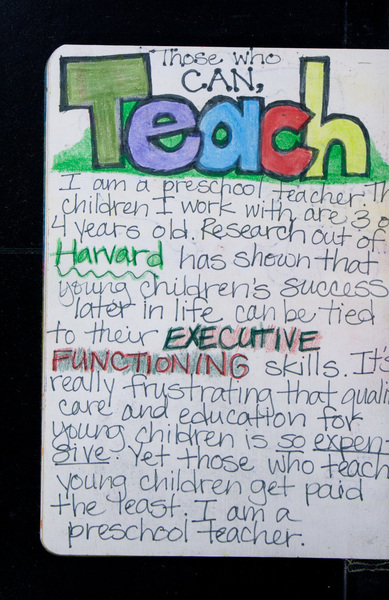 Those who
CAN,
Teach
I am a preschool teacher. Th
children I work with are 3 &
4 years old. Research out of
Harvard has shown that
young children's success
later in life can be tied
to their EXECUTIVE
FUNCTIONING skills. It's
really frustrating that quali
care and education for
young children is so expen
sive. Yet those who teach
young children get paid
the least. I am a
preschool teacher.